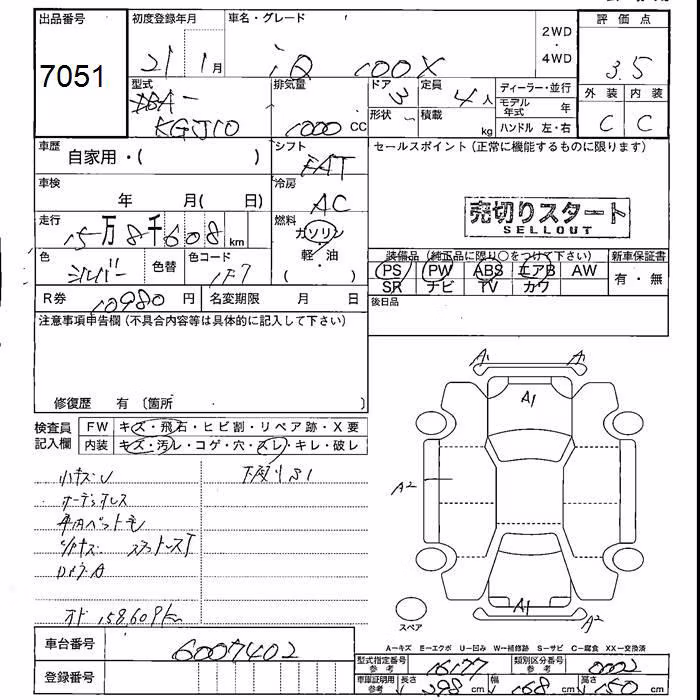 出品番号
7051
初度登録年月
21 1月
車名・グレード
iQ 100X
2WD
・
4WD
評価点
3.5
外装 内装
C C
型式
DBA-
KGJ10
排気量
1000 cc
ドア
3
定員
4人
形状
積載
kg
ディーラー・並行
モデル年式 年
ハンドル 左・右
車歴
自家用・( )
シフト
FAT
車検
年 月( 日)
冷房
AC
走行
15万8千608km
燃料
ガソリン
軽・油
( )
色
シルバー
色替
色コード
1F7
R券
10980円
名変期限 月 日
セールスポイント(正常に機能するものに限ります)
売切りスタート
SELLOUT
装備品(純正品に限り○をつけて下さい)
新車保証書
PS PW ABS エアB AW
有・無
SR ナビ TV カワ
後日品
注意事項申告欄(不具合内容等は具体的に記入して下さい)
修復歴 有〔箇所 〕
検査員
記入欄
FW キズ・飛石・ヒビ割・リペア跡・X要
内装 キズ・汚レ・コゲ・穴・スレ・キレ・破レ
小キズU
オーディオレス
車内ペット毛
オド 158609km
A1 A1
A1
A2
A1
A2
スペア
A−キズ E−エクボ U−凹み W−補修跡 S−サビ C−腐食 XX−交換済
車台番号
6007402
登録番号
型式指定番号
参考
16177
類別区分番号
参考
0002
車庫証明用
参考
長さ
298cm
幅
168cm
高さ
150cm